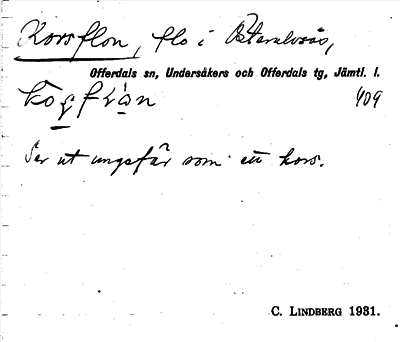 Korsflon, flo i Österulvsås,
Offerdals sn, Undersåkers och Offerdals tg, Jämtl. l.
409
Ser ut ungefär som ett kors.
C. LINDBERG 1931.